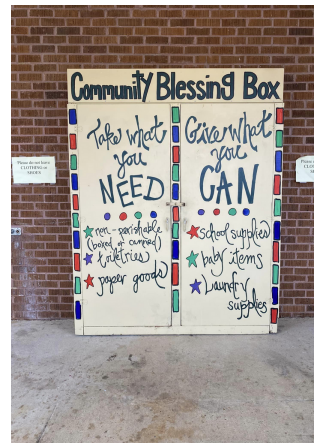 Community Blessing Box
Take what
you
NEED
non-perishable
(boxed or canned)
toiletries
paper goods
Give what
you
CAN
school supplies
baby items
Laundry
supplies
Please do not leave
CLOTHING or
SHOES